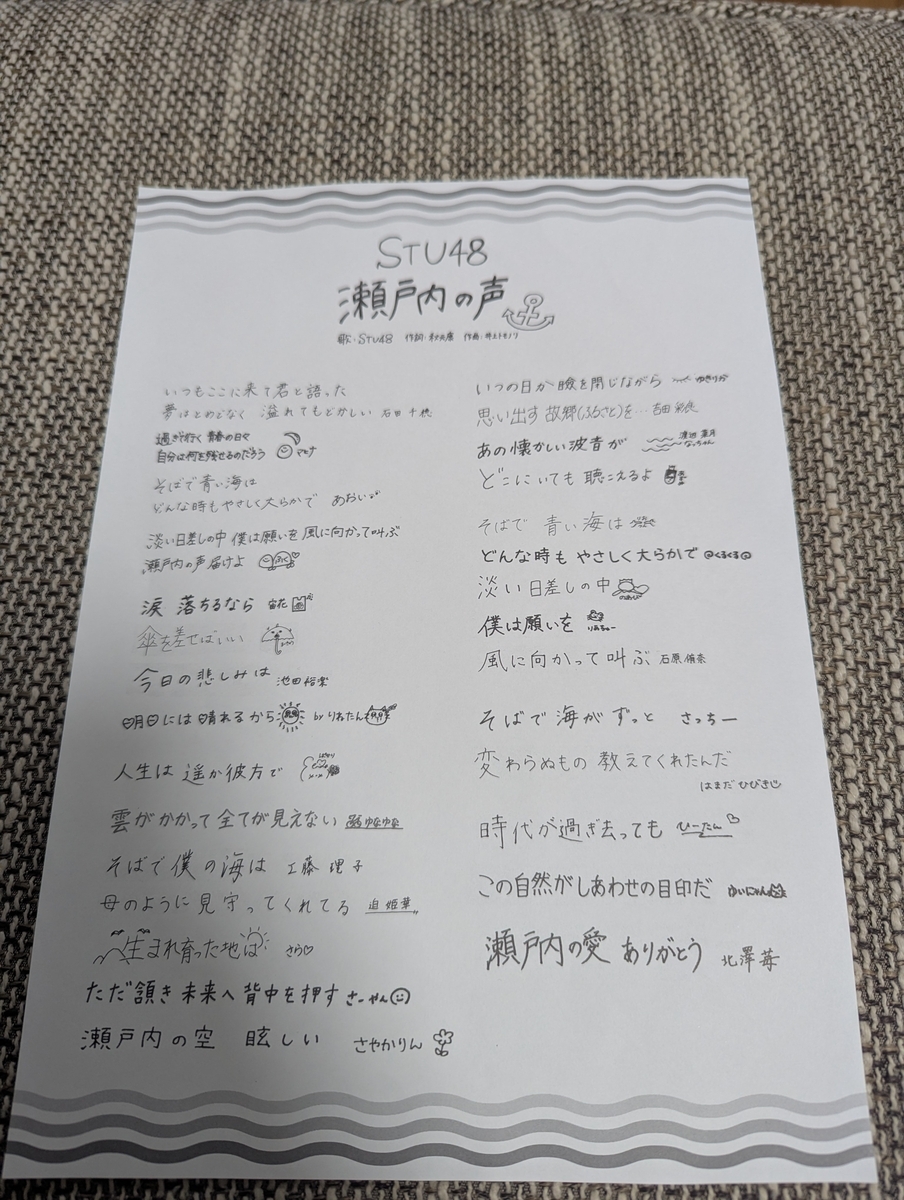 STU48
瀬戸内の声
歌:STU48 作詞:秋元康 作曲:井上トモノリ
いつもここに来て君と語った
夢はとめどなく 溢れてもどかしい 石田千穂
過ぎ行く 青春の日々
自分は何を残せるのだろう マヒナ
そばで青い海は
どんな時もやさしく大らかで あおい
淡い日差しの中 僕は願いを 風に向かって叫ぶ
瀬戸内の声 届けよ ふく
涙 落ちるなら 宙花
傘を差せばいい
今日の悲しみは 池田裕楽
明日には晴れるから by りねたん
人生は 遥か彼方で
雲がかかって 全てが見えない ゆなゆな
そばで僕の海は 工藤理子
母のように見守ってくれてる 迫姫華
生まれ育った地は さら♡
ただ頷き 未来へ 背中を押す さーやん
瀬戸内の空 眩しい さやかりん
いつの日か 瞼を閉じながら ゆきりか
思い出す 故郷(ふるさと)を… 吉田彩良
あの懐かしい波音が 渡辺菜月 なっちゃん
どこにいても 聴こえるよ
そばで 青い海は
どんな時も やさしく大らかで @くるくる@
淡い日差しの中 のあぴ
僕は願いを りみちゅー
風に向かって叫ぶ 石原侑奈
そばで海が ずっと さっちー
変わらぬもの 教えてくれたんだ
はまだひびき
時代が過ぎ去っても ひーたん♡
この自然がしあわせの目印だ ゆいにゃん
瀬戸内の愛 ありがとう 北澤苺